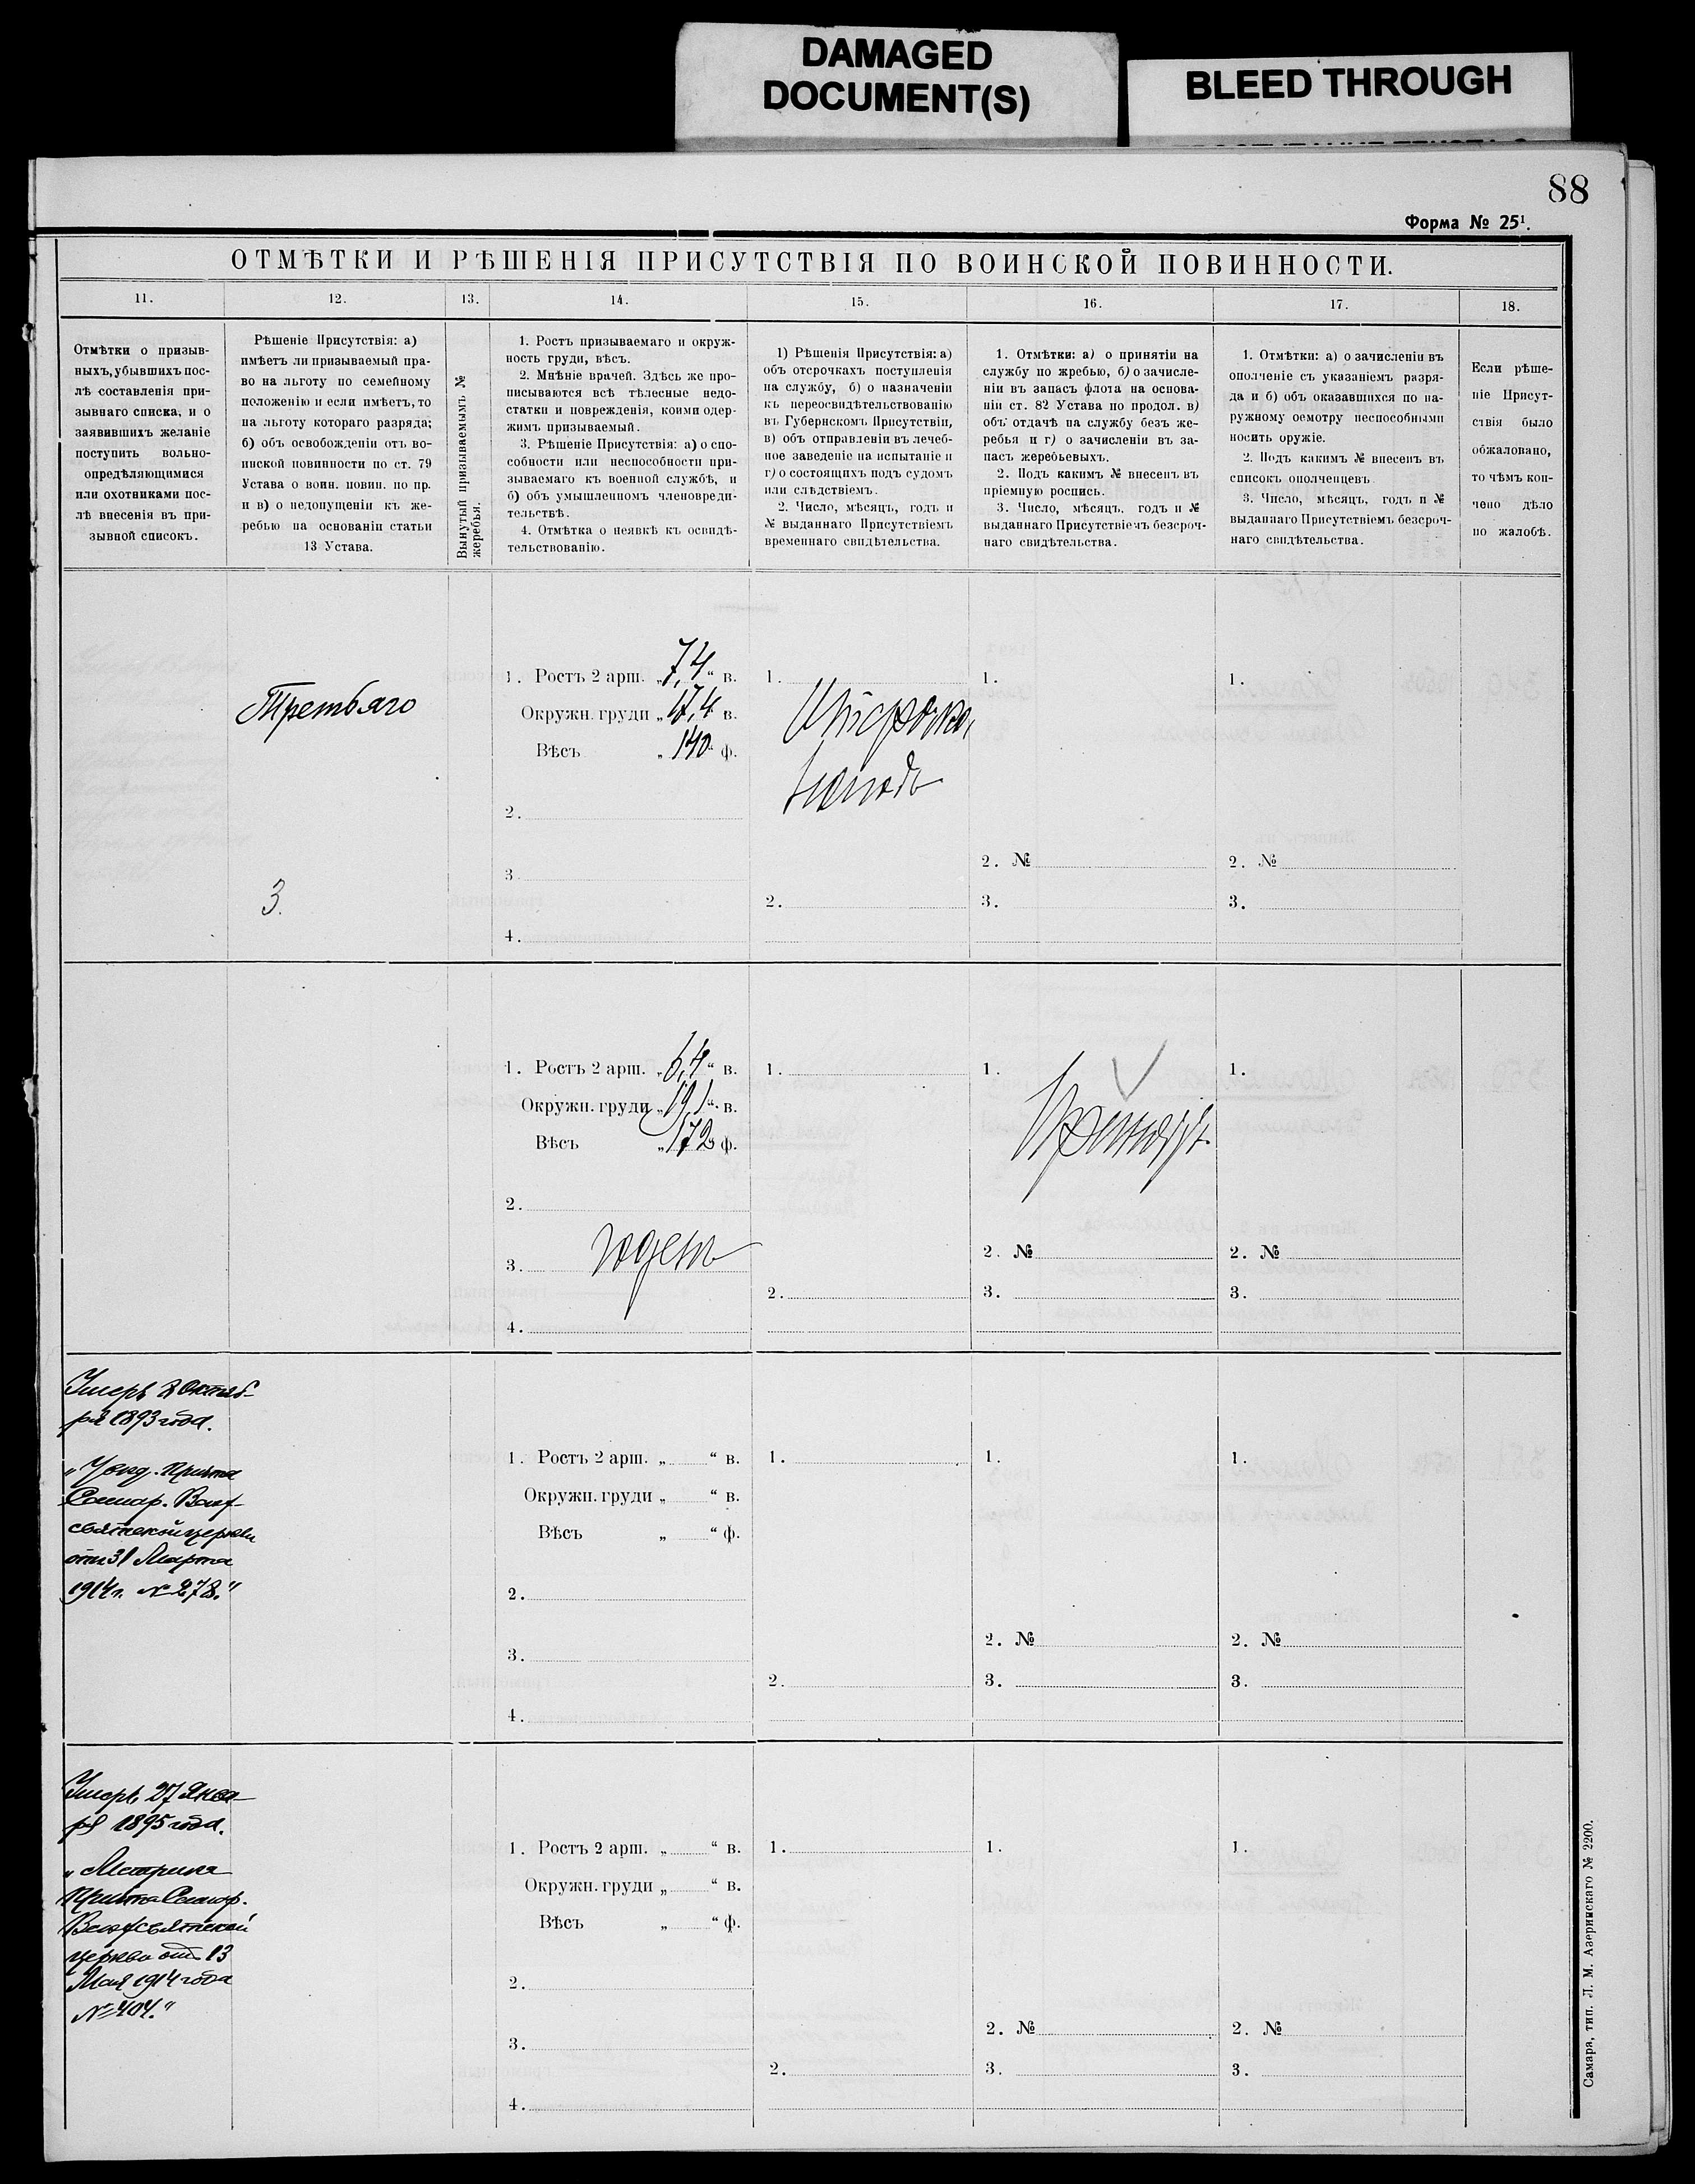 DAMAGED
DOCUMENT(S)
BLEED THROUGH
88
Форма № 25¹.
ОТМѢТКИ И РѢШЕНІЯ ПРИСУТСТВІЯ ПО ВОИНСКОЙ ПОВИННОСТИ.
11. 12. 13. 14. 15. 16. 17. 18.
Отмѣтки о призыв-
ныхъ, убывшихъ пос-
лѣ составленія при-
зывнаго списка, и о
заявившихъ желаніе
поступить вольно-
опредѣляющимися
или охотниками пос-
лѣ внесенія въ при-
зывной списокъ.
Рѣшеніе Присутствія: а)
имѣетъ ли призываемый пра-
во на льготу по семейному
положенію и если имѣетъ, то
на льготу котораго разряда;
б) объ освобожденіи отъ во-
инской повинности по ст. 79
Устава о воин. повин. по пр.
и в) о недопущеніи къ же-
ребью на основаніи статьи
13 Устава.
Вынутый призываемымъ №
жеребья.
1. Ростъ призываемаго и окруж-
ность груди, вѣсъ.
2. Мнѣніе врачей. Здѣсь же про-
писываются всѣ тѣлесные недо-
статки и поврежденія, коими одер-
жимъ призываемый.
3. Рѣшеніе Присутствія: а) о спо-
собности или неспособности при-
зываемаго къ военной службѣ, и
б) объ умышленномъ членовреди-
тельствѣ.
4. Отмѣтка о неявкѣ къ освидѣ-
тельствованію.
1) Рѣшенія Присутствія: а)
объ отсрочкахъ поступленія
на службу, б) о назначеніи
къ переосвидѣтельствованію
въ Губернскомъ Присутствіи,
в) объ отправленіи въ лечеб-
ное заведеніе на испытаніе и
г) о состоящихъ подъ судомъ
или слѣдствіемъ.
2. Число, мѣсяцъ, годъ и
№ выданнаго Присутствіемъ
временнаго свидѣтельства.
1. Отмѣтки: а) о принятіи на
службу по жребью, б) о зачисле-
ніи въ запасъ флота на основа-
ніи ст. 82 Устава по продол. в)
объ отдачѣ на службу безъ же-
ребья и г) о зачисленіи въ за-
пасъ жеребьевыхъ.
2. Подъ какимъ № внесенъ въ
пріемную роспись.
3. Число, мѣсяцъ, годъ и №
выданнаго Присутствіемъ безсроч-
наго свидѣтельства.
1. Отмѣтки: а) о зачисленіи въ
ополченіе съ указаніемъ разря-
да и б) объ оказавшихся по на-
ружному осмотру неспособными
носить оружіе.
2. Подъ какимъ № внесенъ въ
списокъ ополченцевъ.
3. Число, мѣсяцъ, годъ и №
выданнаго Присутствіемъ безсроч-
наго свидѣтельства.
Если рѣше-
ніе Присут-
ствія было
обжаловано,
то чѣмъ кон-
чено дѣло
по жалобѣ.
Третьяго
3.
1. Ростъ 2 арш. „ 7,4 “ в.
Окружн. груди „ 17,4 в.
Вѣсъ „ 140 ф.
2.
3.
4.
1.
2.
1.
2. №
3.
1.
2. №
3.
1. Ростъ 2 арш. „ 6,4 “ в.
Окружн. груди „ 19,1 “ в.
Вѣсъ „ 172 ф.
2.
3. годенъ
4.
1.
2.
1.
Принятъ
2. №
3.
1.
2. №
3.
Умеръ 2 Октяб-
ря 1893 года.
Самар. Вох-
святской церкви
отъ 31 Марта
1914 г. № 278.“
1. Ростъ 2 арш. „ “ в.
Окружн. груди „ “ в.
Вѣсъ „ “ ф.
2.
3.
4.
1.
2.
1.
2. №
3.
1.
2. №
3.
Умеръ 27 Янва-
ря 1895 года.
„Метрика
Причта Самар.
церкви отъ 13
Мая 1914 года
№ 404.“
1. Ростъ 2 арш. „ “ в.
Окружн. груди „ “ в.
Вѣсъ „ “ ф.
2.
3.
4.
1.
2.
1.
2. №
3.
1.
2. №
3.
Самара, тип. Л. М. Азеринскаго № 2200.